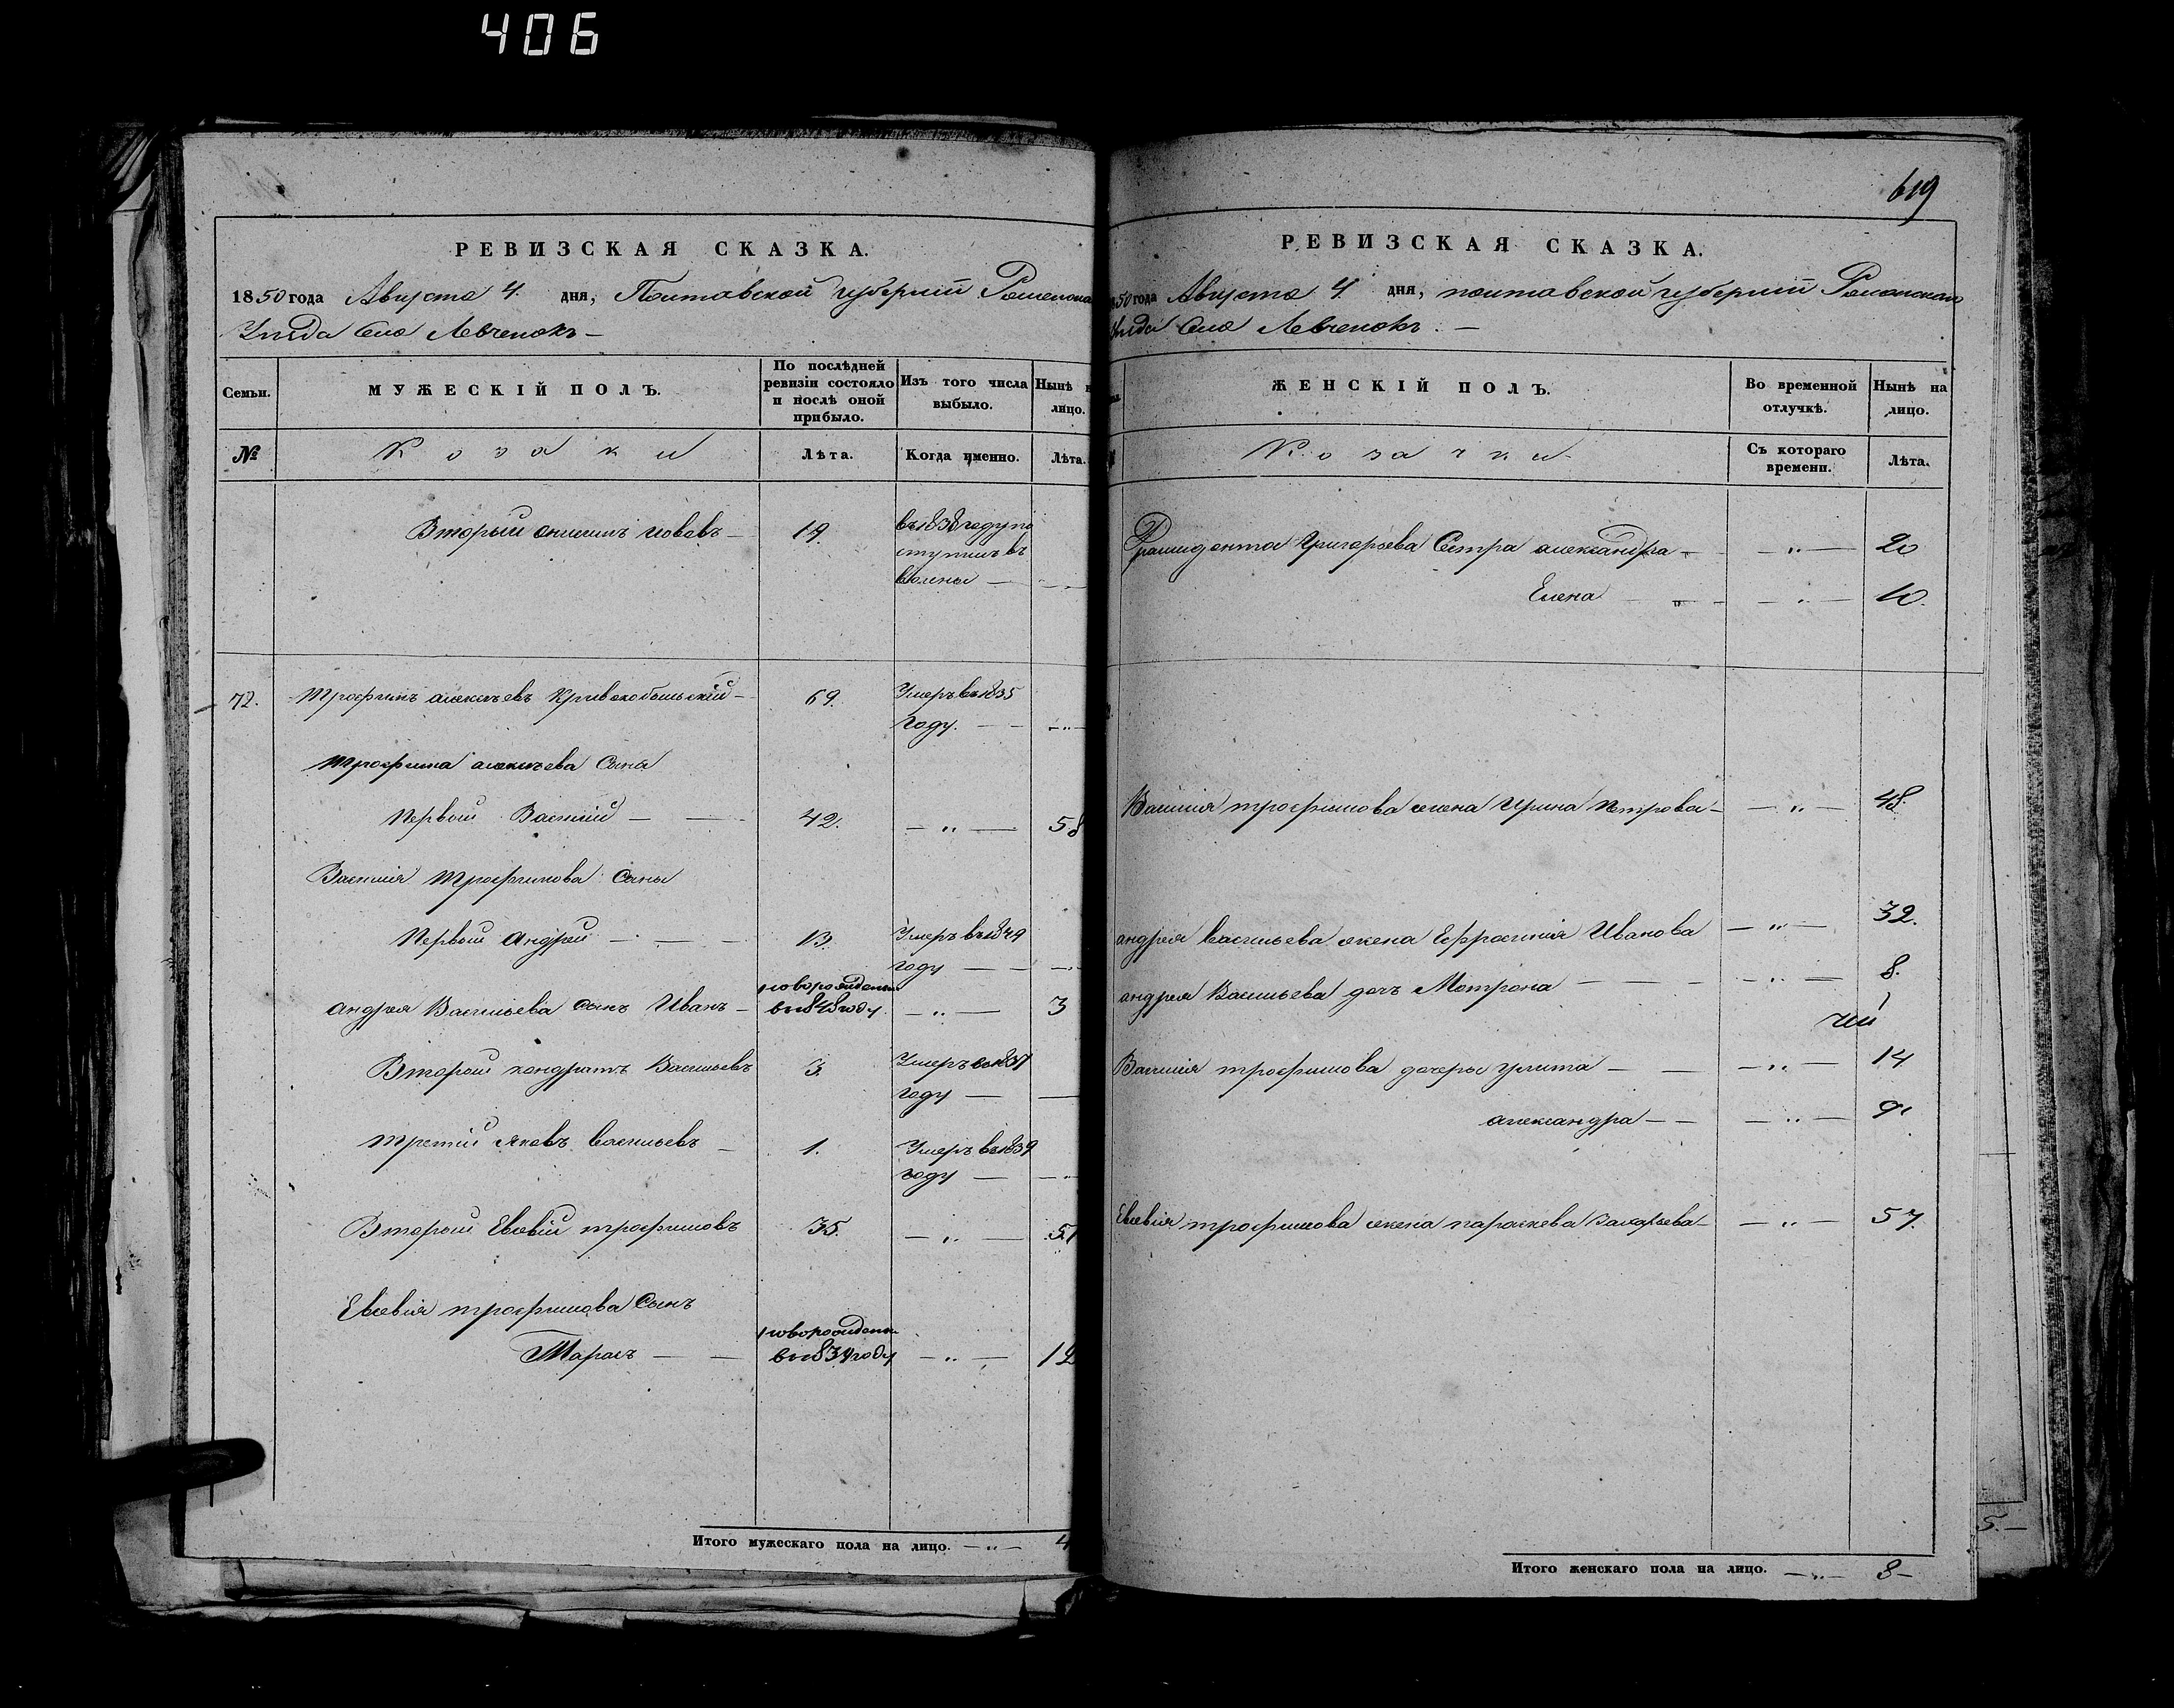 406
РЕВИЗСКАЯ СКАЗКА.
1850 года Августа 4. дня, Полтавской губернии Роменска
Уезда Села Левченокъ —
Семьи.
МУЖЕСКІЙ ПОЛЪ.
По послѣдней ревизіи состояло и послѣ оной прибыло.
Изъ того числа выбыло.
Нынѣ н лицо.
№
Козаки
Лѣта.
Когда именно.
Лѣта.
Вторый онисимъ иововъ — 19. въ 1838 году по
ступилъ въ
72. Трофимъ алексѣевъ Кривокобыльскій — 69. Умеръ въ 1835
году. — — — „ —
Трофима алексѣева Сыны
Первый Василій — — 42. — „ — 58
Василія Трофимова Сыны
Первый Андрей — — — 13. Умеръ въ 1849
году — — —
андрея Васильева сынъ Иванъ — новорожденъ
въ 1848 году. — „ — 3
Второй кондратъ Васильевъ 3. Умеръ въ 1837
году — —
третій яковъ васильевъ — 1. Умеръ въ 1839
году — — „
Второй Евсевій трофимовъ 35. — „ — 51
Евсевія трофимова Сынъ
Тарасъ — — новорожденъ
въ 1839 году — „ — 12
Итого мужескаго пола на лицо. — „ — 4
619
РЕВИЗСКАЯ СКАЗКА.
50 года Августа 4. дня, полтавской губернии Роменскаго
Уезда Села Левченокъ. —
ЖЕНСКІЙ ПОЛЪ.
Во временной отлучкѣ.
Нынѣ на лицо.
Козачки
Съ котораго времени.
Лѣта.
Григорьева Сестра александра — — „ — 20
Елена — „ — — „ — 10.
Василия трофимова жена Ирина Петрова — — „ — 48.
андрея васильева жена Ефросиния Иванова — „ — 32.
андрея Васильева дочъ Мотрона — — — — „ — 8.
Василия трофимова дочеръ улита — — — „ — 14
александра — — — „ — 9.
Евсевія трофимова жена параскева Захарьева — — „ — 57.
Итого женскаго пола на лицо. — „ — 8 —
5. —